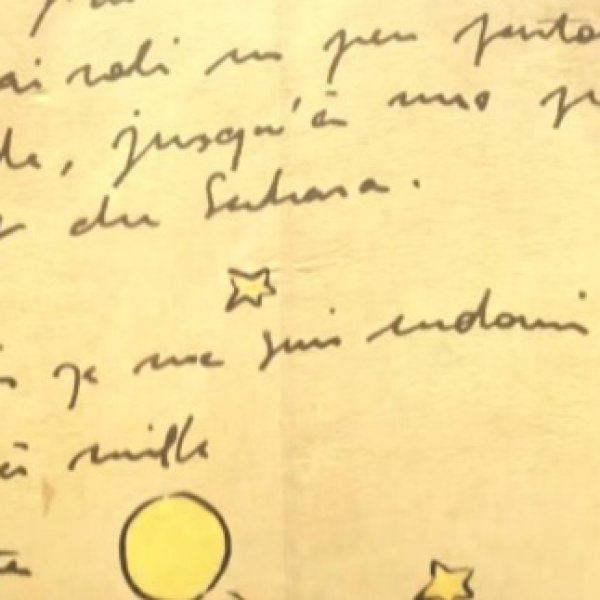 ai volé un peu parto
de, jusqu'à une p
du Sahara.
je me suis endormi
à mille